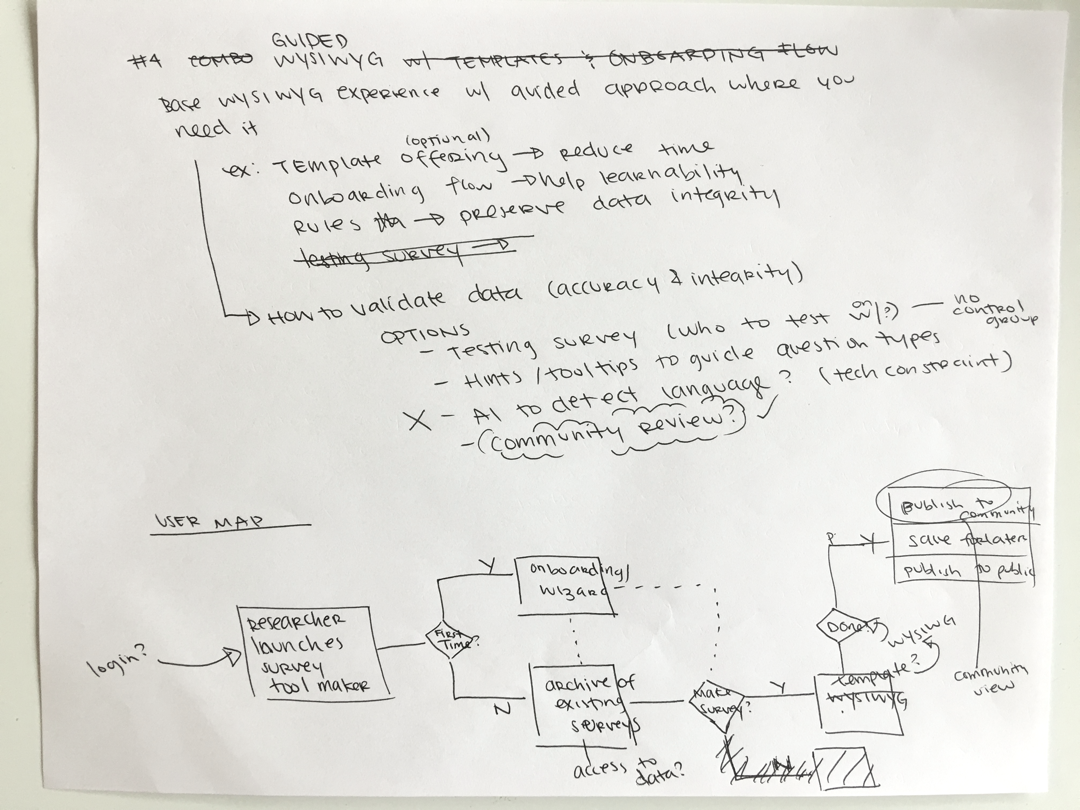 GUIDED
#4 COMBO WYSIWYG w/ TEMPLATES & ONBOARDING FLOW
Base WYSIWYG experience w/ guided approach where you
need it
(optional)
ex: Template offering → reduce time
onboarding flow → help learnability
Rules → preserve data integrity
testing survey →
→ How to validate data (accuracy & integrity)
OPTIONS
- Testing survey (who to test on w/?) — no control group
- Hints/tooltips to guide question types
X - AI to detect language? (tech constraint)
- (community review?) ✓
USER MAP
login?
Researcher
launches
survey
tool maker
First
Time?
Y
N
onboarding/
wizard
archive of
existing
surveys
access to
data?
Make
survey?
Y
N
template?
WYSIWYG
?
Done?
WYSIWG
Y
publish to
community
save for later
publish to public
community
view